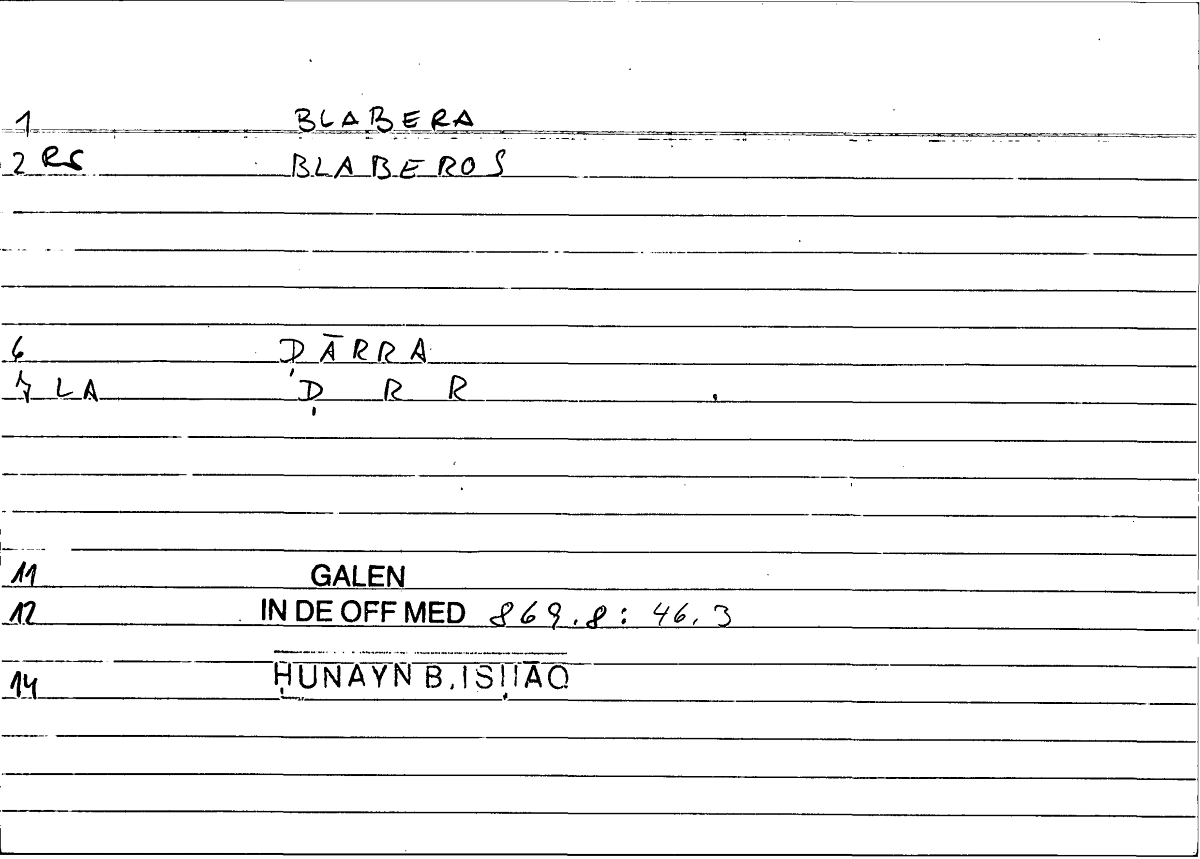 1 BLABERA
2 RS BLABEROS
6 ḌĀRRA
7 LA Ḍ R R
11 GALEN
12 IN DE OFF MED 869.8: 46.3
14 ḤUNAYN B. ISḤĀQ